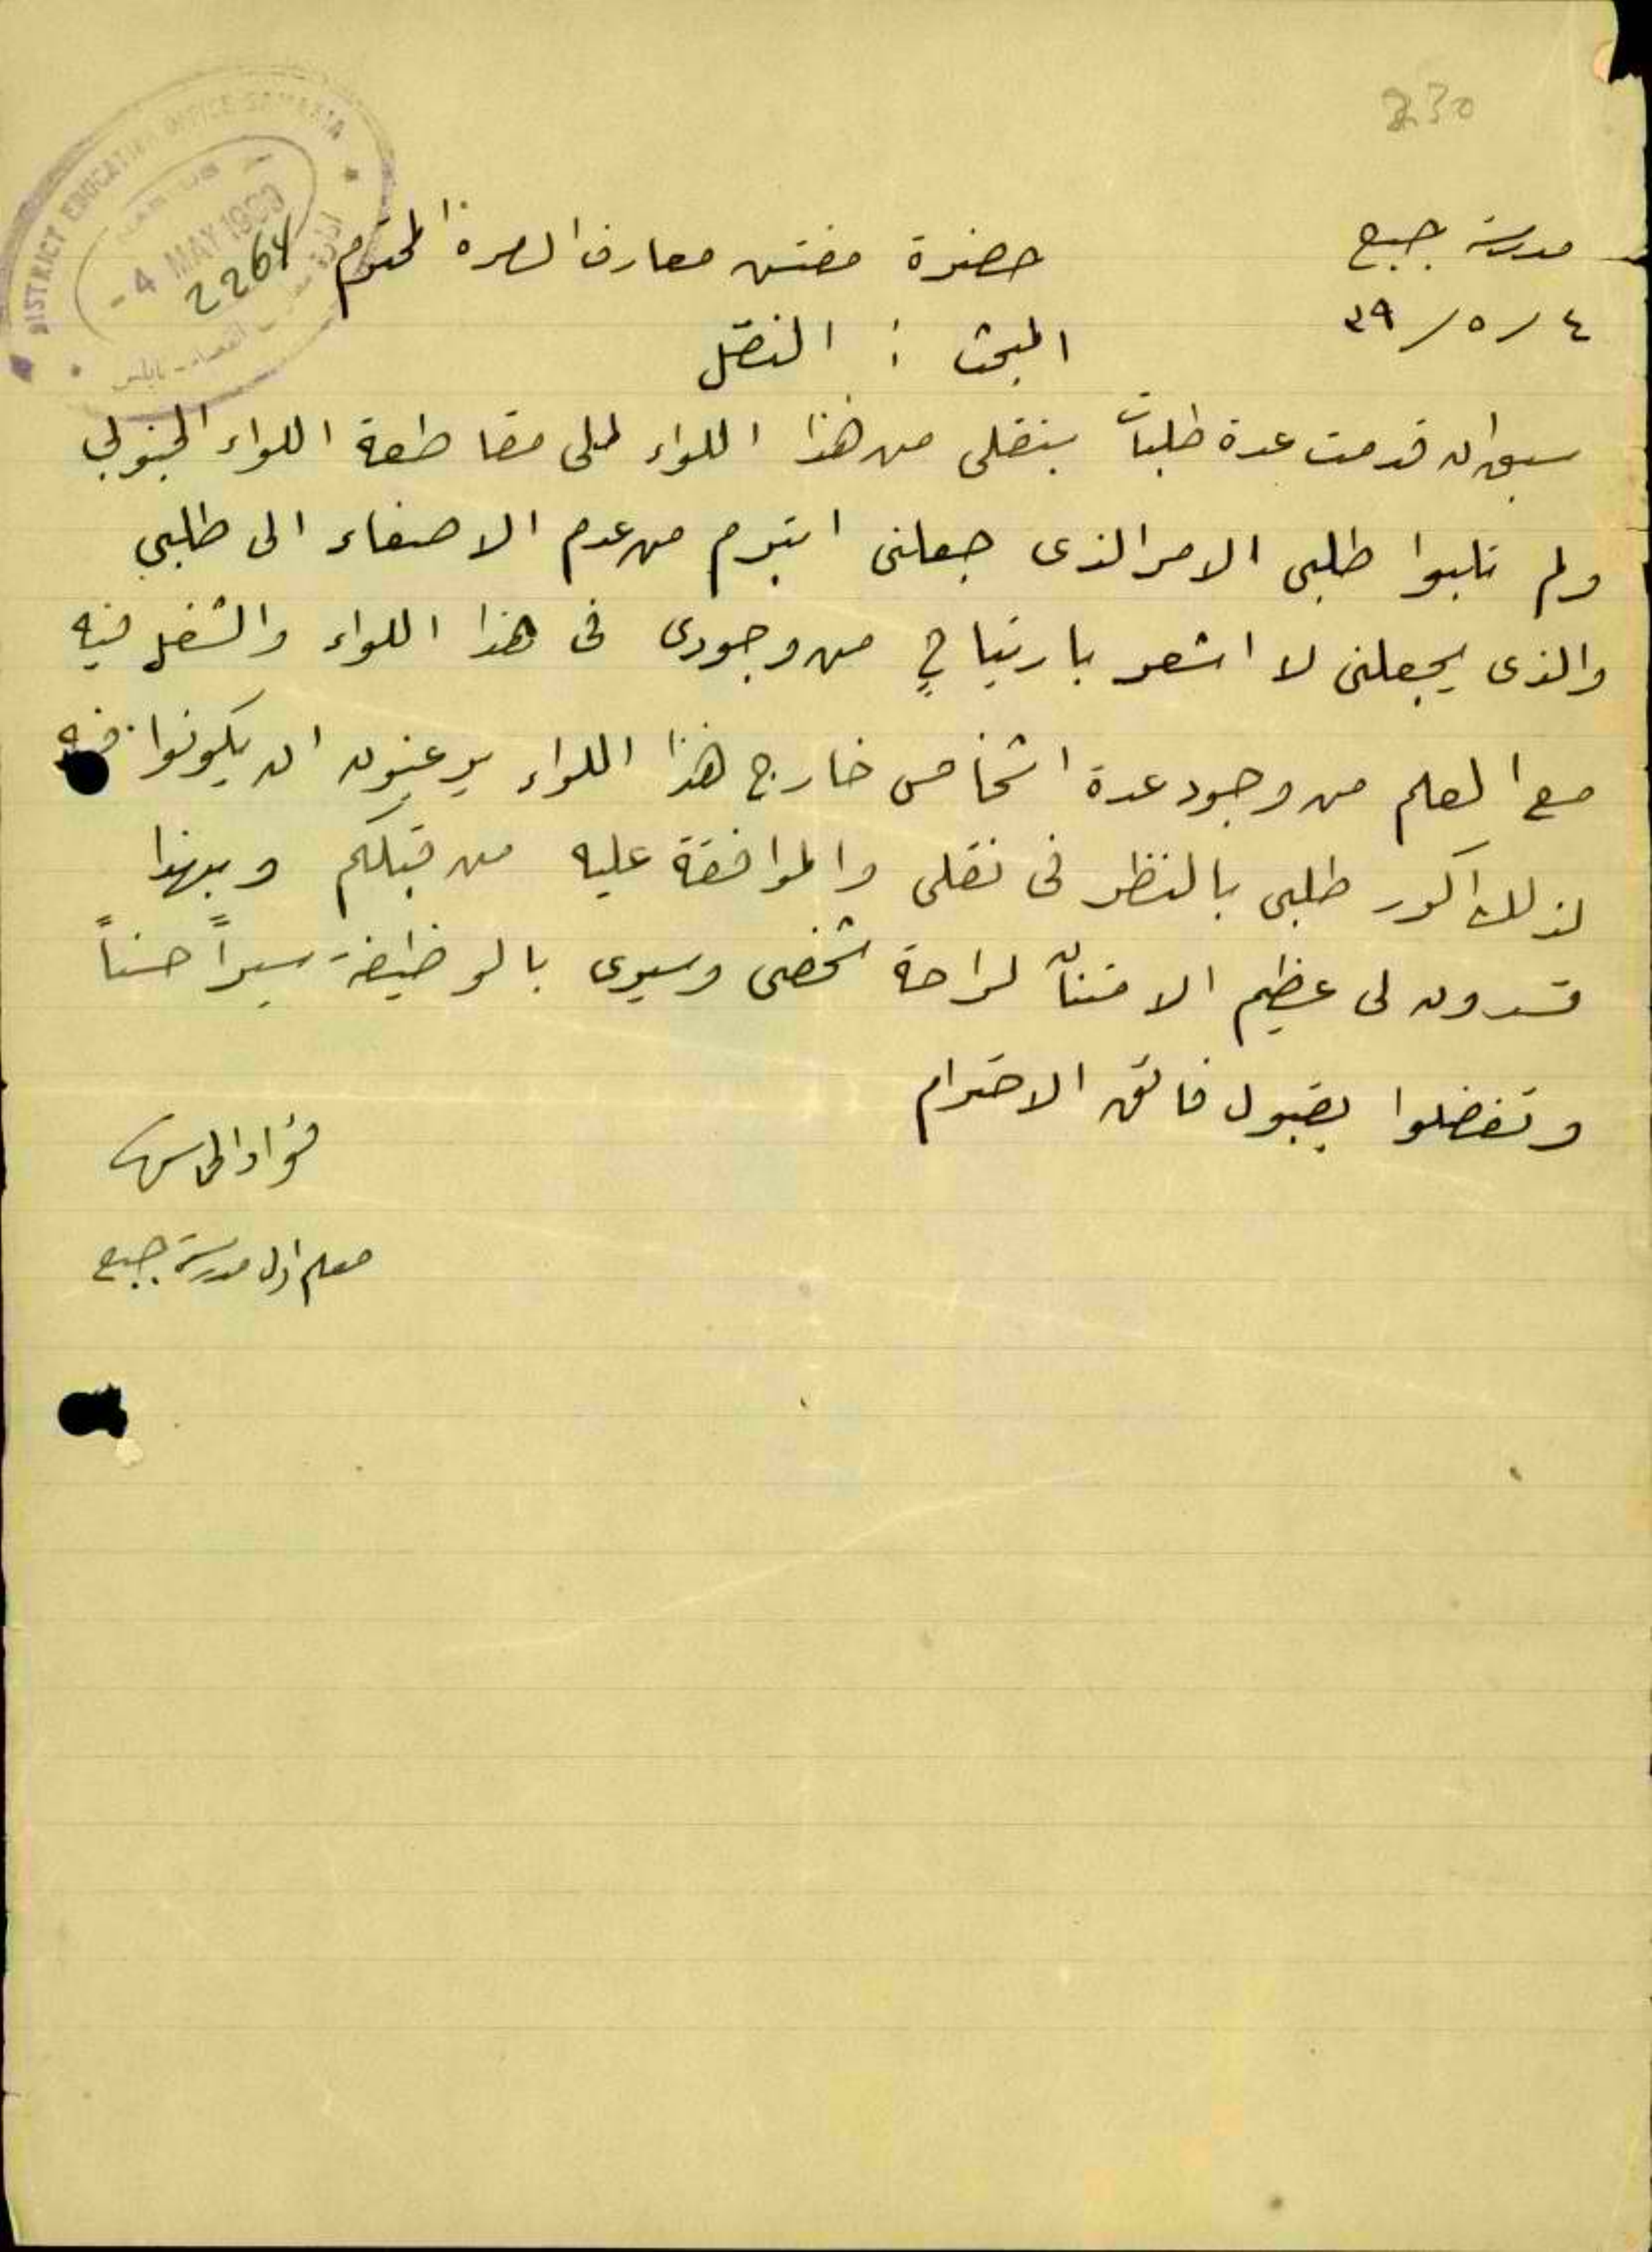 230
DISTRICT EDUCATION OFFICE SAMARIA
- 4 MAY 1939
2264
مدرسة جبع
٤ / ٥ / ٣٩
حضرة مفتش معارف السامرة المحترم
المبحث : النقل
سبق ان قدمت عدة طلبات بنقلى من هذا اللواء الى مقاطعة اللواء الجنوبي
ولم تلبوا طلبى الامر الذى جعلنى اتبرم من عدم الاصغاء الى طلبي
والذى يجعلنى لا اشعر بارتياح من وجودى فى هذا اللواء والشغل فيه
مع العلم من وجود عدة اشخاص خارج هذا اللواء يرغبون ان يكونوا فيه
لذلك اكرر طلبى بالنظر فى نقلى والموافقة عليه من قبلكم وبهذا
تسدون لى عظيم الامتنان لراحة شخصى وسيرى بالوظيفة سيراً حسناً
وتفضلوا بقبول فائق الاحترام
فؤاد
معلم اول مدرسة جبع